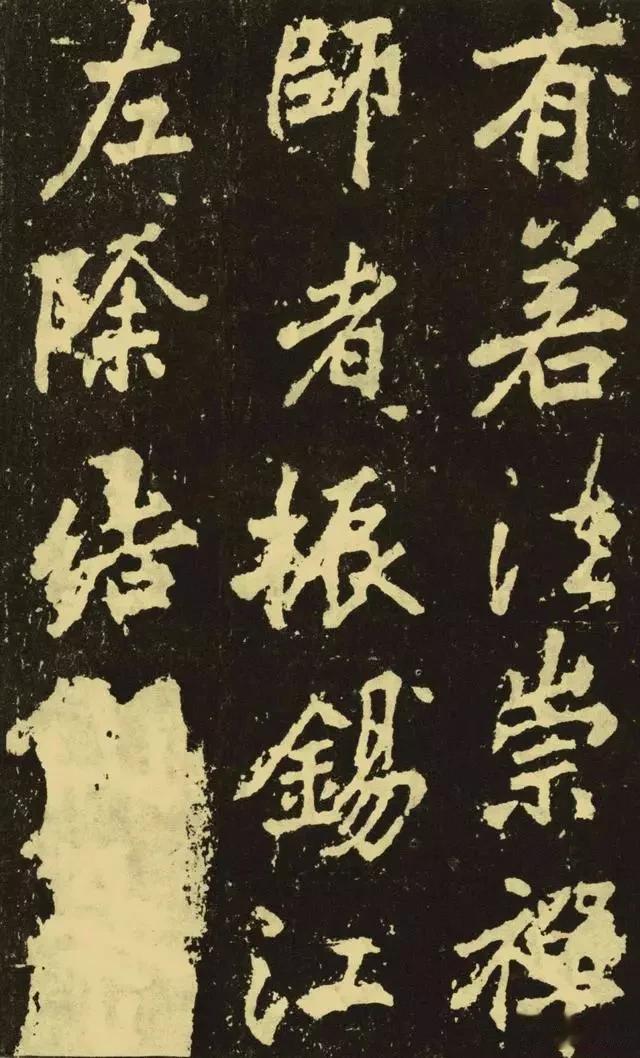 有若法崇禪
師者振錫江
左除結